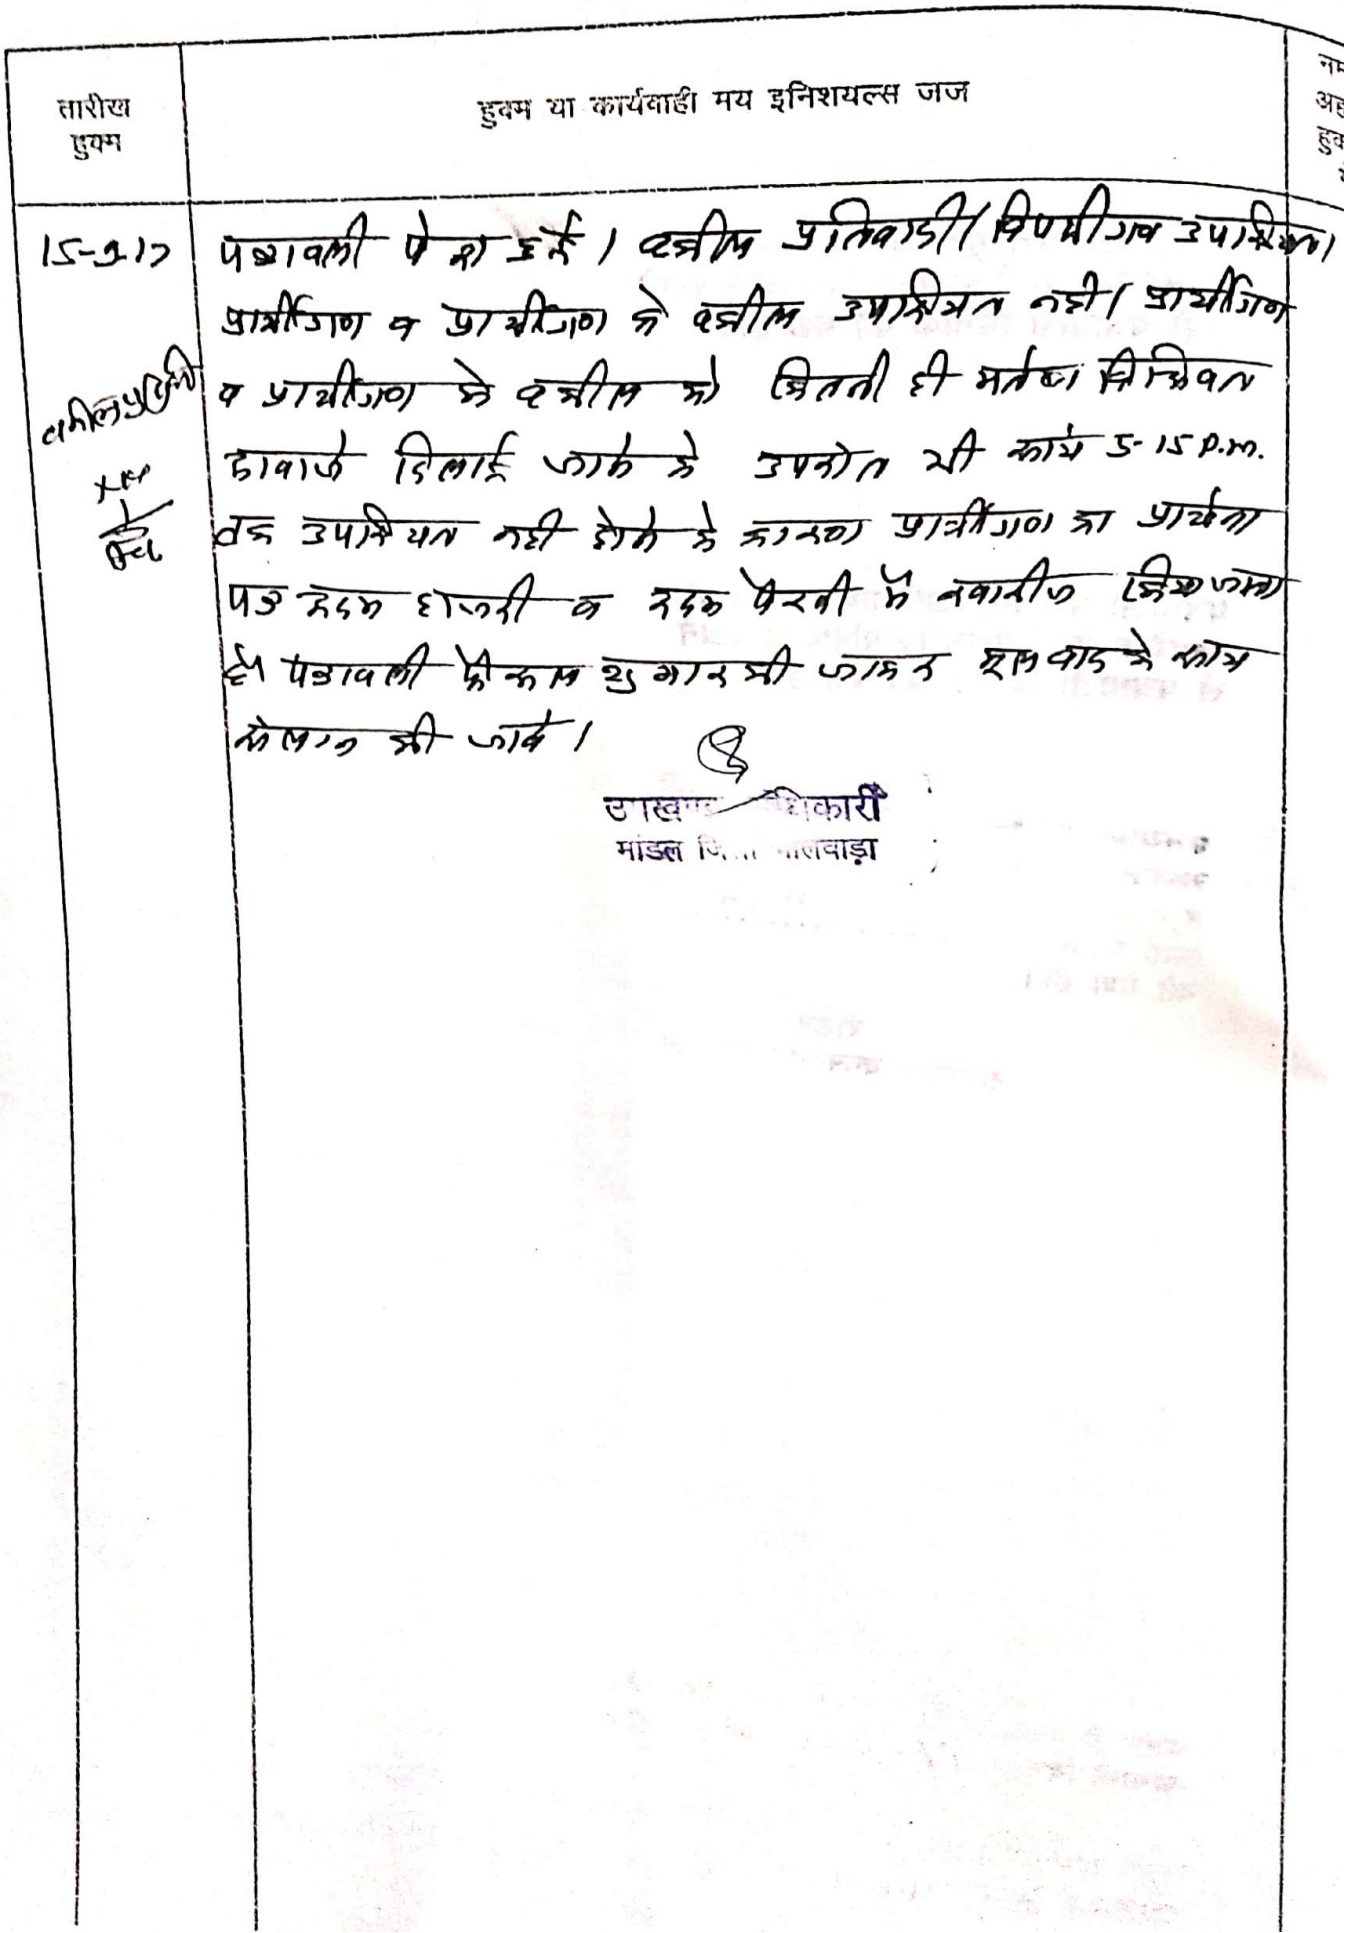 तारीख
हुक्म
हुक्म या कार्यवाही मय इनिशयल्स जज
15-9-17
पत्रावली पेश हुई। वकील प्रतिवादी/विपक्षीगण उपस्थित।
प्रार्थीगण व प्रार्थीगण के वकील उपस्थित नही। प्रार्थीगण
व प्रार्थीगण के वकील को कितनी ही मर्तबा
आवाजे दिलाई जाने के उपरांत भी सायं 5-15 P.m.
तक उपस्थित नही होने के कारण प्रार्थीगण का प्रार्थना
पत्र अदम हाजरी व अदम पैरवी में खारीज किया जाता
है। पत्रावली फैसल शुमार की जाकर मूल वाद के साथ
संलग्न की जावे।
उपखण्ड अधिकारी
मांडल जिला भीलवाड़ा